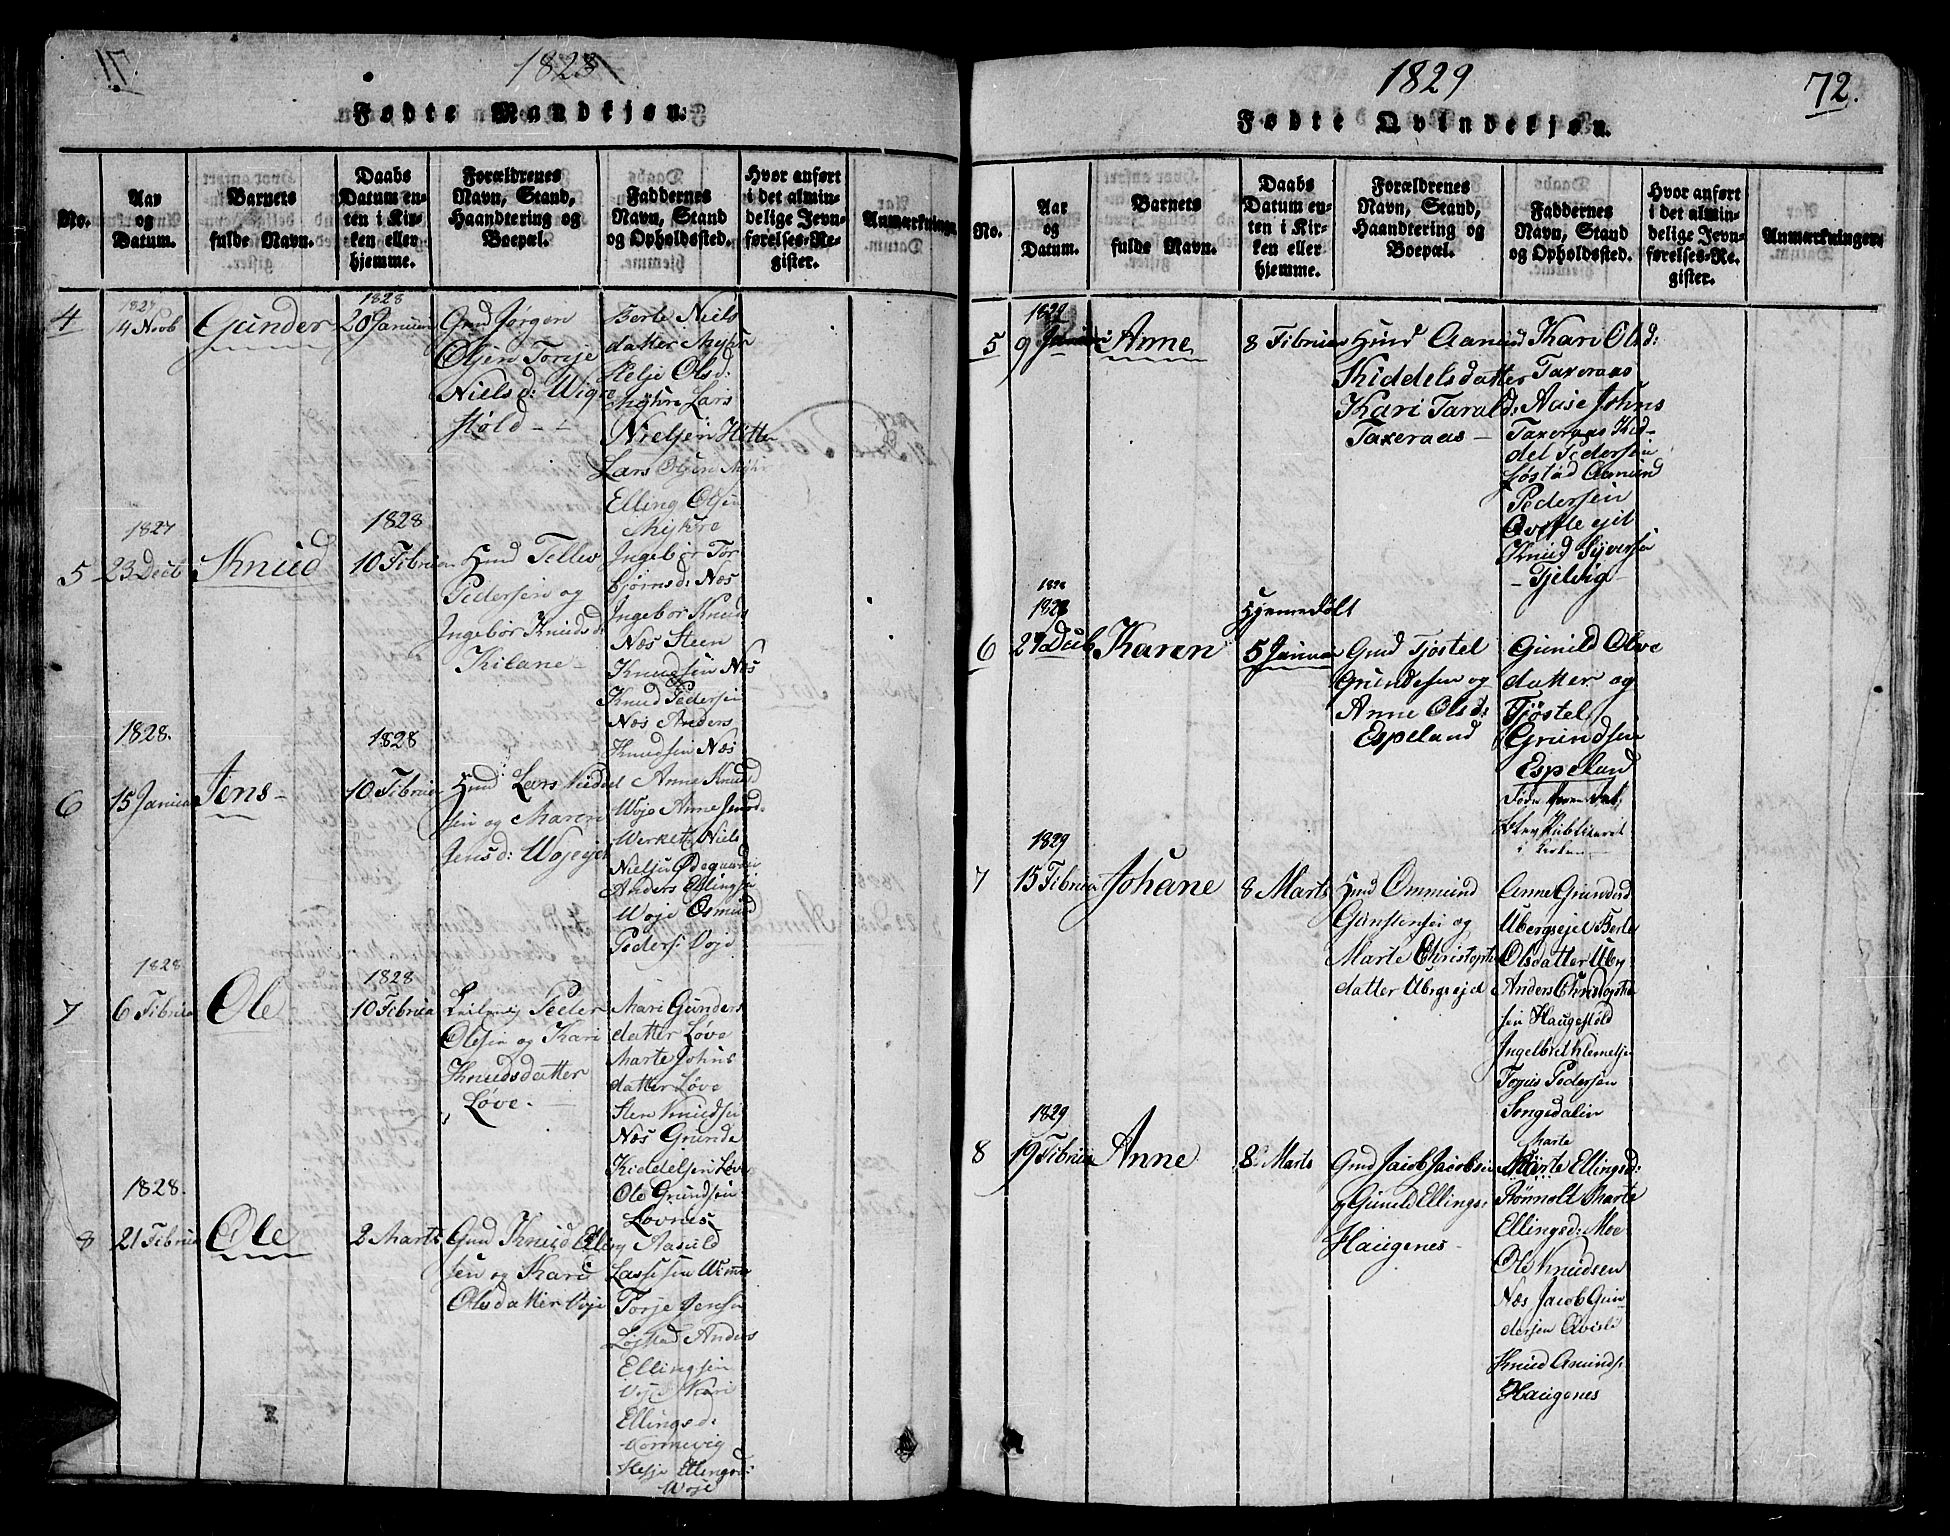 1828
Fødte Mandkjøn.
No.
Aar og Datum.
Barnets fulde Navn.
Daabs Datum enten i Kirken eller hjemme.
Forældrenes Navn, Stand, Haandtering og Boepæl.
Faddernes Navn, Stand og Opholdssted.
Hvor anført i det almindelige Jevnførelses-Register.
Anmærkninger.
4
1827
4 Novb
Gunder
1828
20 Januar
Gmd Jørgen
Olsen Torje
Nielsd: Wigre
støld
Berte Niels
datter Mykre
Helje Olsd:
Mykre Lars
Nielsen
Lars Olsen
Elling Olsen
Mykre
5
1827
23 Decb
Knud
1828
10 Februar
Hmd Tellev
Pedersen og
Ingebor Knuds d:
Kilane
Ingebor Tor
biørnsd: Næs
Ingebor Knuds
Næs Steen
Knudsen Næs
Knud Pedersen
Næs Anders
Knudsen Næs
6
1828.
15 Januar
Jens
1828
10 Februar
Hmd Lars
sen og Maren
Jensd: Wojeejet
Anne Knud
Woje Anne
Werket Niels
Nielsen Ødegaarden
Anders Ellingsen
Woje Osmund
Peders: Voje
7
1828
6 Februa
Ole
1828
10 Februa
Peder
Olesen og Kari
Knudsdatter
Løve
Mari Gunders
datter Løve
Marte Johns
datter Løve
Sten Knudsen
Næs Grunde
Kiddelsen Løve
Ole Grundsen
Løvnes
8
1828.
21 Februa
Ole
2 Marts
Gmd Knud
sen og Kari
Olsdatter Voje
Aasuld
Lassesen
Torje Jensen
Løjstad Anders
Ellingsen
Voje Kari
Ellingsd:
Kornevig
Ellingsd:
Woje
1829
72.
Fødte Qvindekjøn.
No.
Aar og Datum.
Barnets fulde Navn.
Daabs Datum enten i Kirken eller hjemme.
Forældrenes Navn, Stand, Haandtering og Boepæl.
Faddernes Navn, Stand og Opholdssted.
Hvor anført i det almindelige Jevnførelses-Register.
Anmærkninger
5
1829
9 Januari
Anne
8 Februar
Hmd Aamund
Kiddelsdatter
Kari Tarald:
Taxeraas
Kari Olsd:
Taxeraas
Aase Johns
Taxeraas Kid-
del Pedersen
Løstad Aamund
Pedersen
Knud Syversen
Tjelvig
6
1828
27 Decb
Karen
Hjemmedøbt
5 Januar
Gmd Tjøstel
Grundesen og
Anne Olsd:
Espeland
Gunild Olve
datter og
Tjøstel
Grundsen
Espeland
blev Publiceret
i Kirken
7
1829
15 Februa
Johane
8 Marts
Hmd Ommund
Gunstensen og
Marte Christophe
datter Ubergsejed
Anne Grundesd
Ubergsejet Berte
Olsdatter Uby
Anders Christophe
sen Haugestøld
Ingelbret Klemetse
Togius Pedersen
Songedalen
8
1829
19 Februa
Anne
8 Marts
Gmd Jacob Jacobsen
og Gunild Ellings:
Haugenes
Marte
Marte Ellingsd:
Rønnolt Marte
Ellingsd: Moe
Ole Knudsen
Næs Jacob Gun
dersen
Knud Amunds:
Haugenes